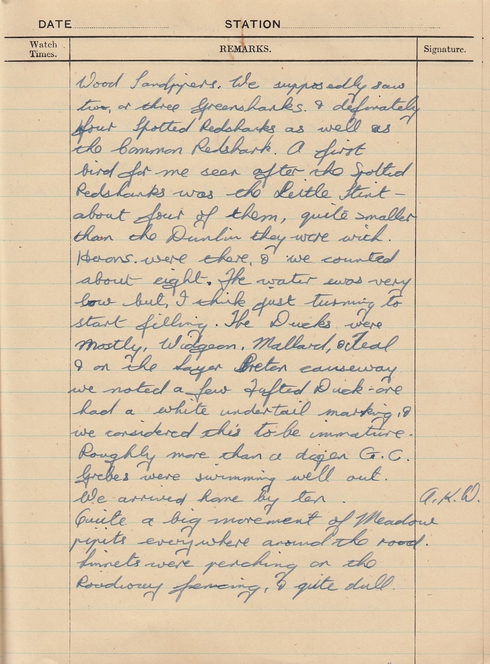 DATE STATION
Watch Times. REMARKS. Signature.
Wood Sandpipers. We supposedly saw
two, or three Greensharks. & definately
four Spotted Redsharks as well as
the Common Redshark. A first
bird for me seen after the Spotted
Redsharks was the Little Stint -
about four of them, quite smaller
than the Dunlin they were with.
Herons were there, & we counted
about eight. The water was very
low but, I think just turning to
start filling. The Ducks were
mostly, Widgeon, Mallard, & Teal
& on the Layer Breton causeway
we noted a few Tufted Duck - one
had a white undertail marking, &
we considered this to be immature.
Roughly more than a dozen G. C.
Grebes were swimming well out.
We arrived home by ten. A.K.W.
Quite a big movement of Meadow
pipits everywhere around the road.
Linnets were perching on the
Roadway fencing, & quite dull.